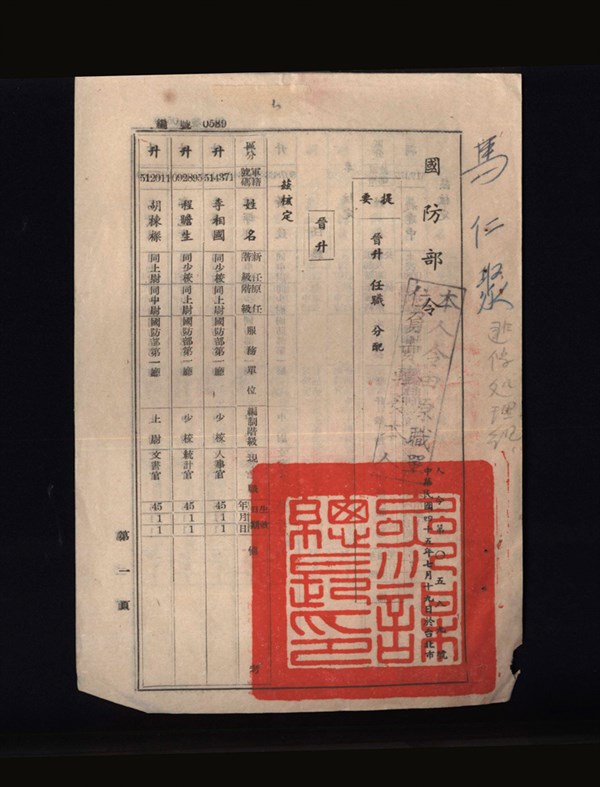 馬仁聚
國防部令
本人令由原職單位
提要
晉升 任職 分配
人令第〇五八九號
中華民國四十五年七月十九日於台北市
參謀總長之印
晉升
茲核定
編號 0589
區分 軍籍號碼 姓名 新任階級 原任階級 服務單位 編制階級 現職 生效日期 年月日 備考
升 514371 李相國 同少校 同上尉 國防部第一廳 少校 人事官 45 1 1
升 092895 程瞻生 同少校 同上尉 國防部第一廳 少校 統計官 45 1 1
升 512011 胡棟樑 同上尉 同中尉 國防部第一廳 上尉 文書官 45 1 1
第一頁